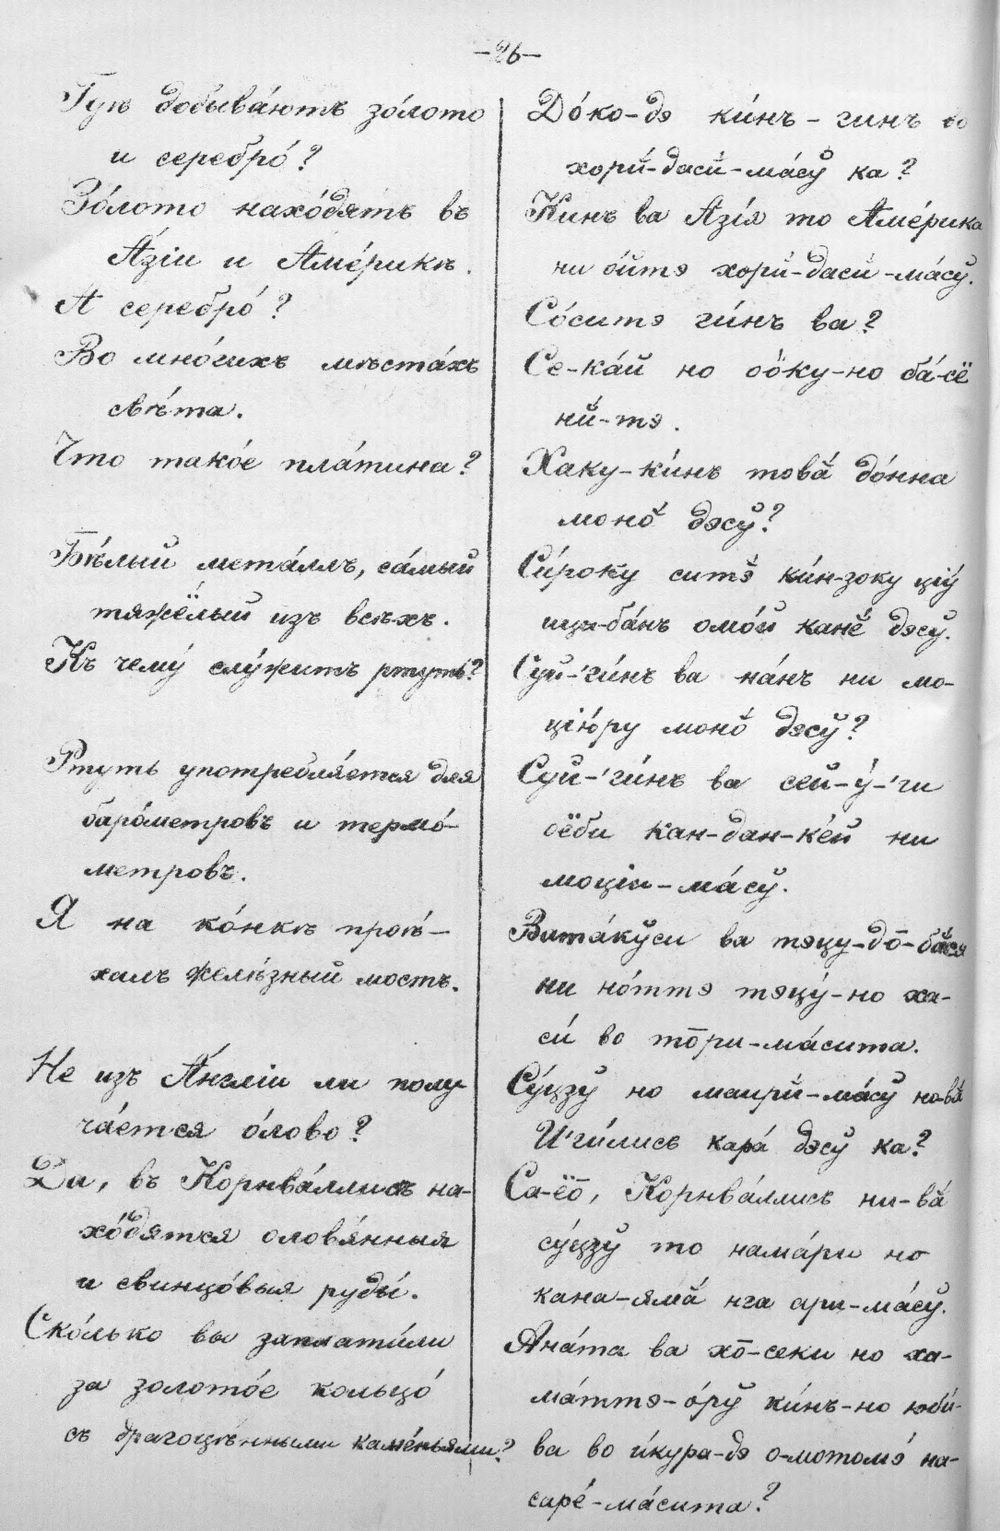 —26—
Гдѣ добыва́ютъ зо́лото
и серебро́?
Зо́лото нахо́дятъ въ
А́зіи и Аме́рикѣ.
А серебро́?
Во мно́гихъ мѣста́хъ
свѣ́та.
Что тако́е пла́тина?
Бѣ́лый мета́ллъ, са́мый
тяжёлый изъ всѣхъ.
Къ чему́ слу́житъ ртуть?
Ртуть употребля́ется для
баро́метровъ и термо́-
метровъ.
Я на ко́нкѣ проѣ́-
халъ желѣ́зный мостъ.
Не изъ А́нгліи ли полу-
ча́ется о́лово?
Да, въ Корнва́ллисѣ на-
хо́дятся оловя́нныя
и свинцо́выя руды́.
Ско́лько вы заплати́ли
за золото́е кольцо́
съ драгоцѣ́нными каме́ньями?
До́ко-дэ ки́нъ-гинъ во
хорй-дасй-ма́сŭ ка?
Кинъ ва Азі́я то Аме́рика
ни о́йтэ хорй-дасй-ма́сŭ.
Со́ситэ ги́нъ ва?
Се-ка́й но о́о̄ку-но ба́-сё
нй-тэ.
Хаку-ки́нъ товӑ до́нна
моно̆ дэсŭ?
Си́року ситэ̆ ки́н-зоку ціŭ
ици-ба́нъ омо́й канѐ дэсŭ.
Суй-'ги́нъ ва на́нъ ни мо-
цію́ру моно̆ дэсŭ?
Суй-'ги́нъ ва сей-ў-'ги
оёби кан-дан-ке́й ни
моціи-ма́сŭ.
Ватáкŭси ва тэцу-до̄-ба́ся
ни но́ттэ тэцу́-но ха-
си́ во то̄ри-ма́сита.
Су́цзŭ но маирй-ма́сŭ но-вӑ
И'ги́лисъ кара́ дэсŭ ка?
Са-ёо̄, Корнва́ллисъ ни-вӑ
су́цзŭ то нама́ри но
кана-ямӑ нга ари-ма́сŭ.
Ана́та ва хо̄-секи но ха-
ма́ттэ-о́рŭ ки́нъ-но юби́-
ва во и́кура-дэ о-мотомэ́ на-
саре́-ма́сита?